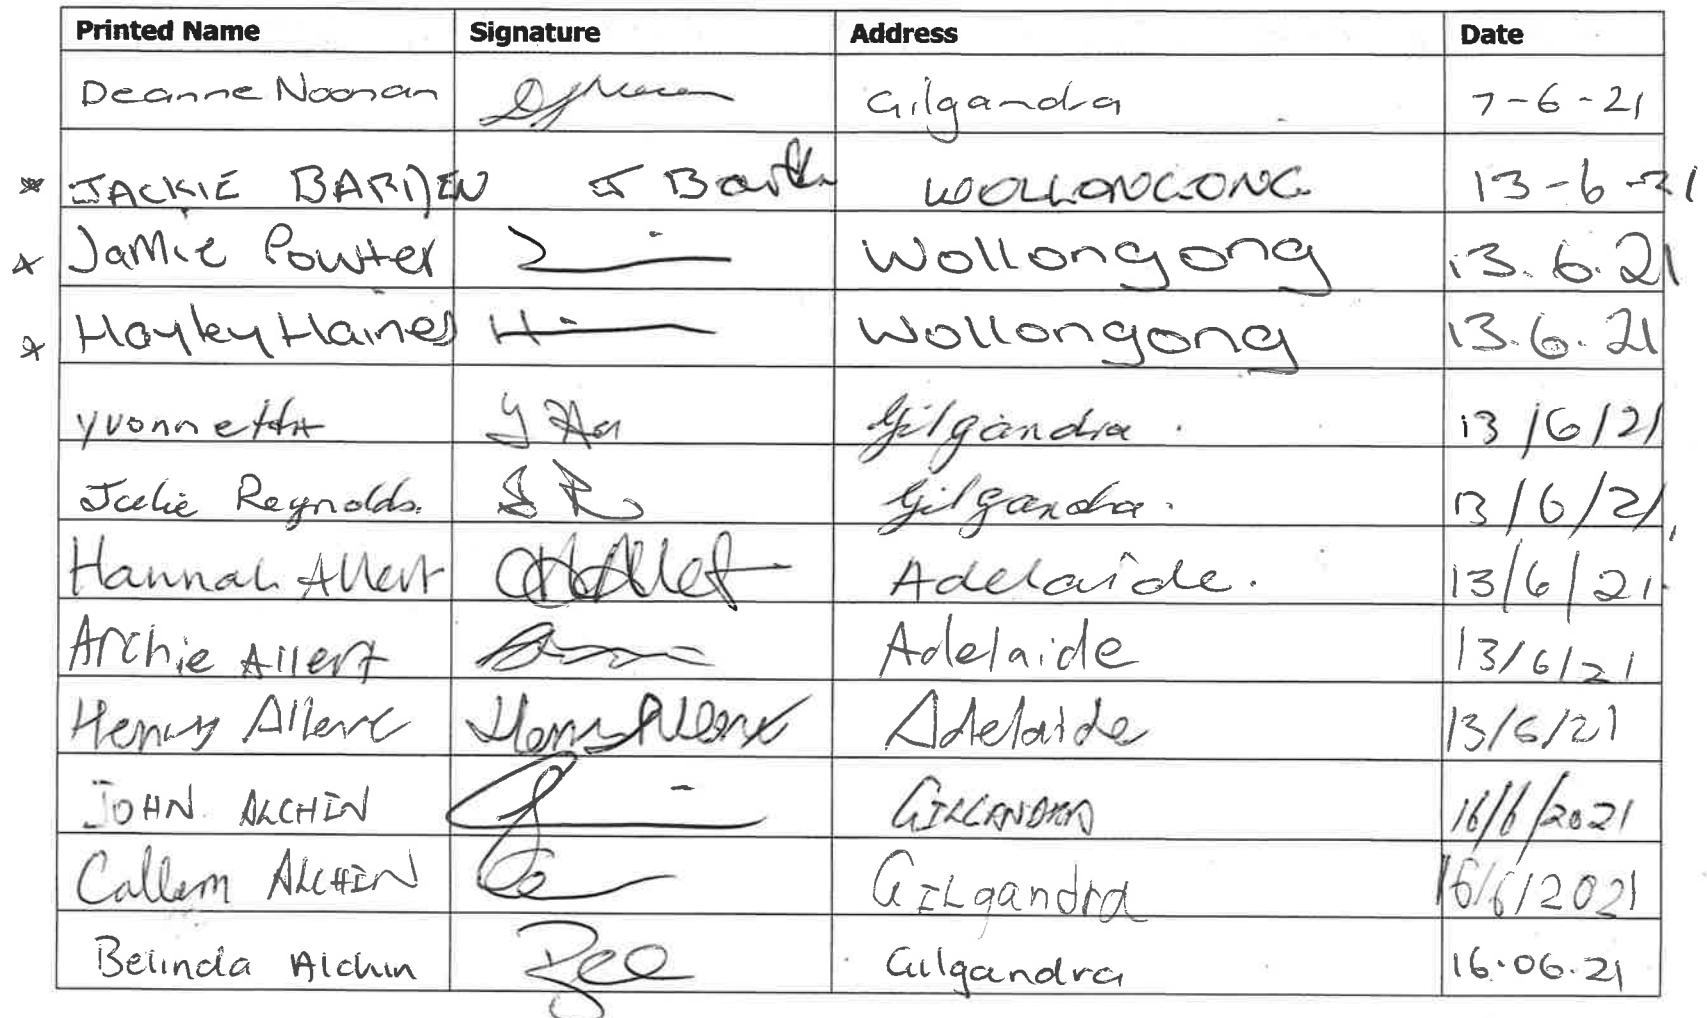 Printed Name Signature Address Date
Deanne Noonan Gilgandra 7-6-21
* JACKIE J WOLLONGONG 13-6-21
* Jamie Powter Wollongong 13.6.21
* Hayley Haines H Wollongong 13.6.21
Gilgandra. 13/6/21
Julie Reynolds. J R Gilgandra. 13/6/21
Hannah Allert Adelaide. 13/6/21
Archie Allert Adelaide 13/6/21
Henry Allert Henry Allert Adelaide 13/6/21
JOHN ALCHIN GILGANDRA 16/6/2021
Callum ALCHIN GILgandra 16/6/2021
Belinda Alchin Bee Gilgandra 16.06.21